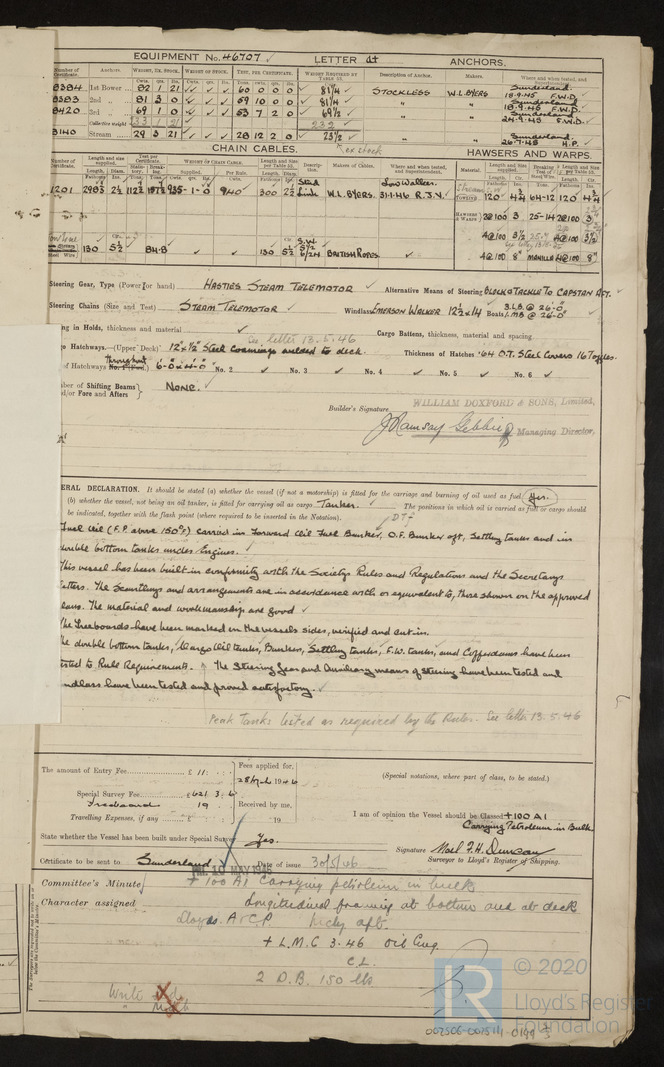 EQUIPMENT No. 46707 LETTER ANCHORS.
Number of Certificate. Anchors. WEIGHT, EX. STOCK. WEIGHT OF STOCK. TEST, PER CERTIFICATE. WEIGHT REQUIRED BY TABLE 53. Description of Anchor. Makers. Where and when tested, and Superintendent.
8384 1st Bower 82 1 21 60 0 0 0 81¼ STOCKLESS W.L. BYERS Sunderland 18.9.45 F.W.D.
8383 2nd " 81 3 0 59 10 0 0 81¼ " " Sunderland 18.9.45 F.W.D.
8420 3rd " 69 1 0 53 7 2 0 69½ " " Sunderland 24.9.45 F.W.D.
Collective weight 233 1 21 232
8140 Stream 29 3 21 28 12 2 0 23½ " " Sunderland 26.7.45 H.P.
ex stock
CHAIN CABLES. HAWSERS AND WARPS.
Number of Certificate. Length and size supplied. Test per Certificate. WEIGHT OF CHAIN CABLE. Length and Size per Table 53. Description. Makers of Cables. Where and when tested, and Superintendent. Material. Length and size supplied. Breaking Test of Steel Wire. Length and Size per Table 53.
1201 2⅞ 112½ 935-1-0 940 300 2½ Stud Link W.L. BYERS. Low Walker. 31.1.46 R.J.N. TOWLINE 120 4¾ 64-12 120 4¾
HAWSERS & WARPS 2@100 3 25-14 2@100
4@100 3½ 4@100 3½
130 5½ 84.8 130 5½ S.W. 6/24 BRITISH ROPES 4@100 8" MANILLA 4@100 8"
Steering Gear, Type (Power or hand) HASTIES STEAM TELEMOTOR Alternative Means of Steering BLOCK & TACKLE TO CAPSTAN AFT.
Steering Chains (Size and Test) STEAM TELEMOTOR Windlass EMERSON WALKER 12½ x 14 Boats 3 L.B. @ 26-0" 1 M.B. @ 26-0"
ing in Holds, thickness and material Cargo Battens, thickness, material and spacing
See letter 13.5.46
go Hatchways.—(Upper Deck) 12" x ½" Steel Coamings welded to deck. Thickness of Hatches .64 O.T. Steel Covers 16 Toggles.
of Hatchways throughout 6'-0" x 4'-0" No. 2 No. 3 No. 4 No. 5 No. 6
ber of Shifting Beams and/or Fore and Afters NONE.
Builder's Signature WILLIAM DOXFORD & SONS, Limited,
J Ramsay Gebbie Managing Director,
ERAL DECLARATION. It should be stated (a) whether the vessel (if not a motorship) is fitted for the carriage and burning of oil used as fuel, Yes.
(b) whether the vessel, not being an oil tanker, is fitted for carrying oil as cargo Tanker. The positions in which oil is carried as fuel or cargo should
be indicated, together with the flash point (where required to be inserted in the Notation).
Fuel Oil (F.P. above 150°F) carried in Forward Oil Fuel Bunker, O.F. Bunker aft, Settling tanks and in
double bottom tanks under Engines.
This vessel has been built in conformity with the Society's Rules and Regulations and the Secretary's
letters. The Scantlings and arrangements are in accordance with or equivalent to, those shown on the approved
plans. The material and workmanship are good
The freeboards have been marked on the vessels sides, verified and cut in.
The double bottom tanks, Cargo Oil tanks, Bunkers, Settling tanks, F.W. tanks, and Cofferdams have been
tested to Rule Requirements. The Steering Gear and Auxiliary means of steering have been tested and
windlass have been tested and proved satisfactory.
Peak Tanks tested as required by the Rules. See letter 13.5.46
The amount of Entry Fee £ 11 : : Fees applied for, (Special notations, where part of class, to be stated.)
Special Survey Fee £ 621 : 3 : 6
Freeboard 19 Received by me,
Travelling Expenses, if any £ : : 19
I am of opinion the Vessel should be Classed +100 A1
Carrying Petroleum in Bulk
State whether the Vessel has been built under Special Survey Yes.
Signature Noel F.H. Duncan
Surveyor to Lloyd's Register of Shipping.
Certificate to be sent to Sunderland Date of issue 30/5/46
FRI. 10 MAY 1946
Committee's Minute + 100 A1 Carrying petroleum in bulk
Character assigned Longitudinal framing at bottom and at deck
Lloyds A & C.P. Mchy aft.
+ L.M.C 3.46 Oil Eng.
C.L.
2 D.B. 150 lbs
Write
© 2020
LR
Lloyd's Register
Foundation
002506-002511-0199 3